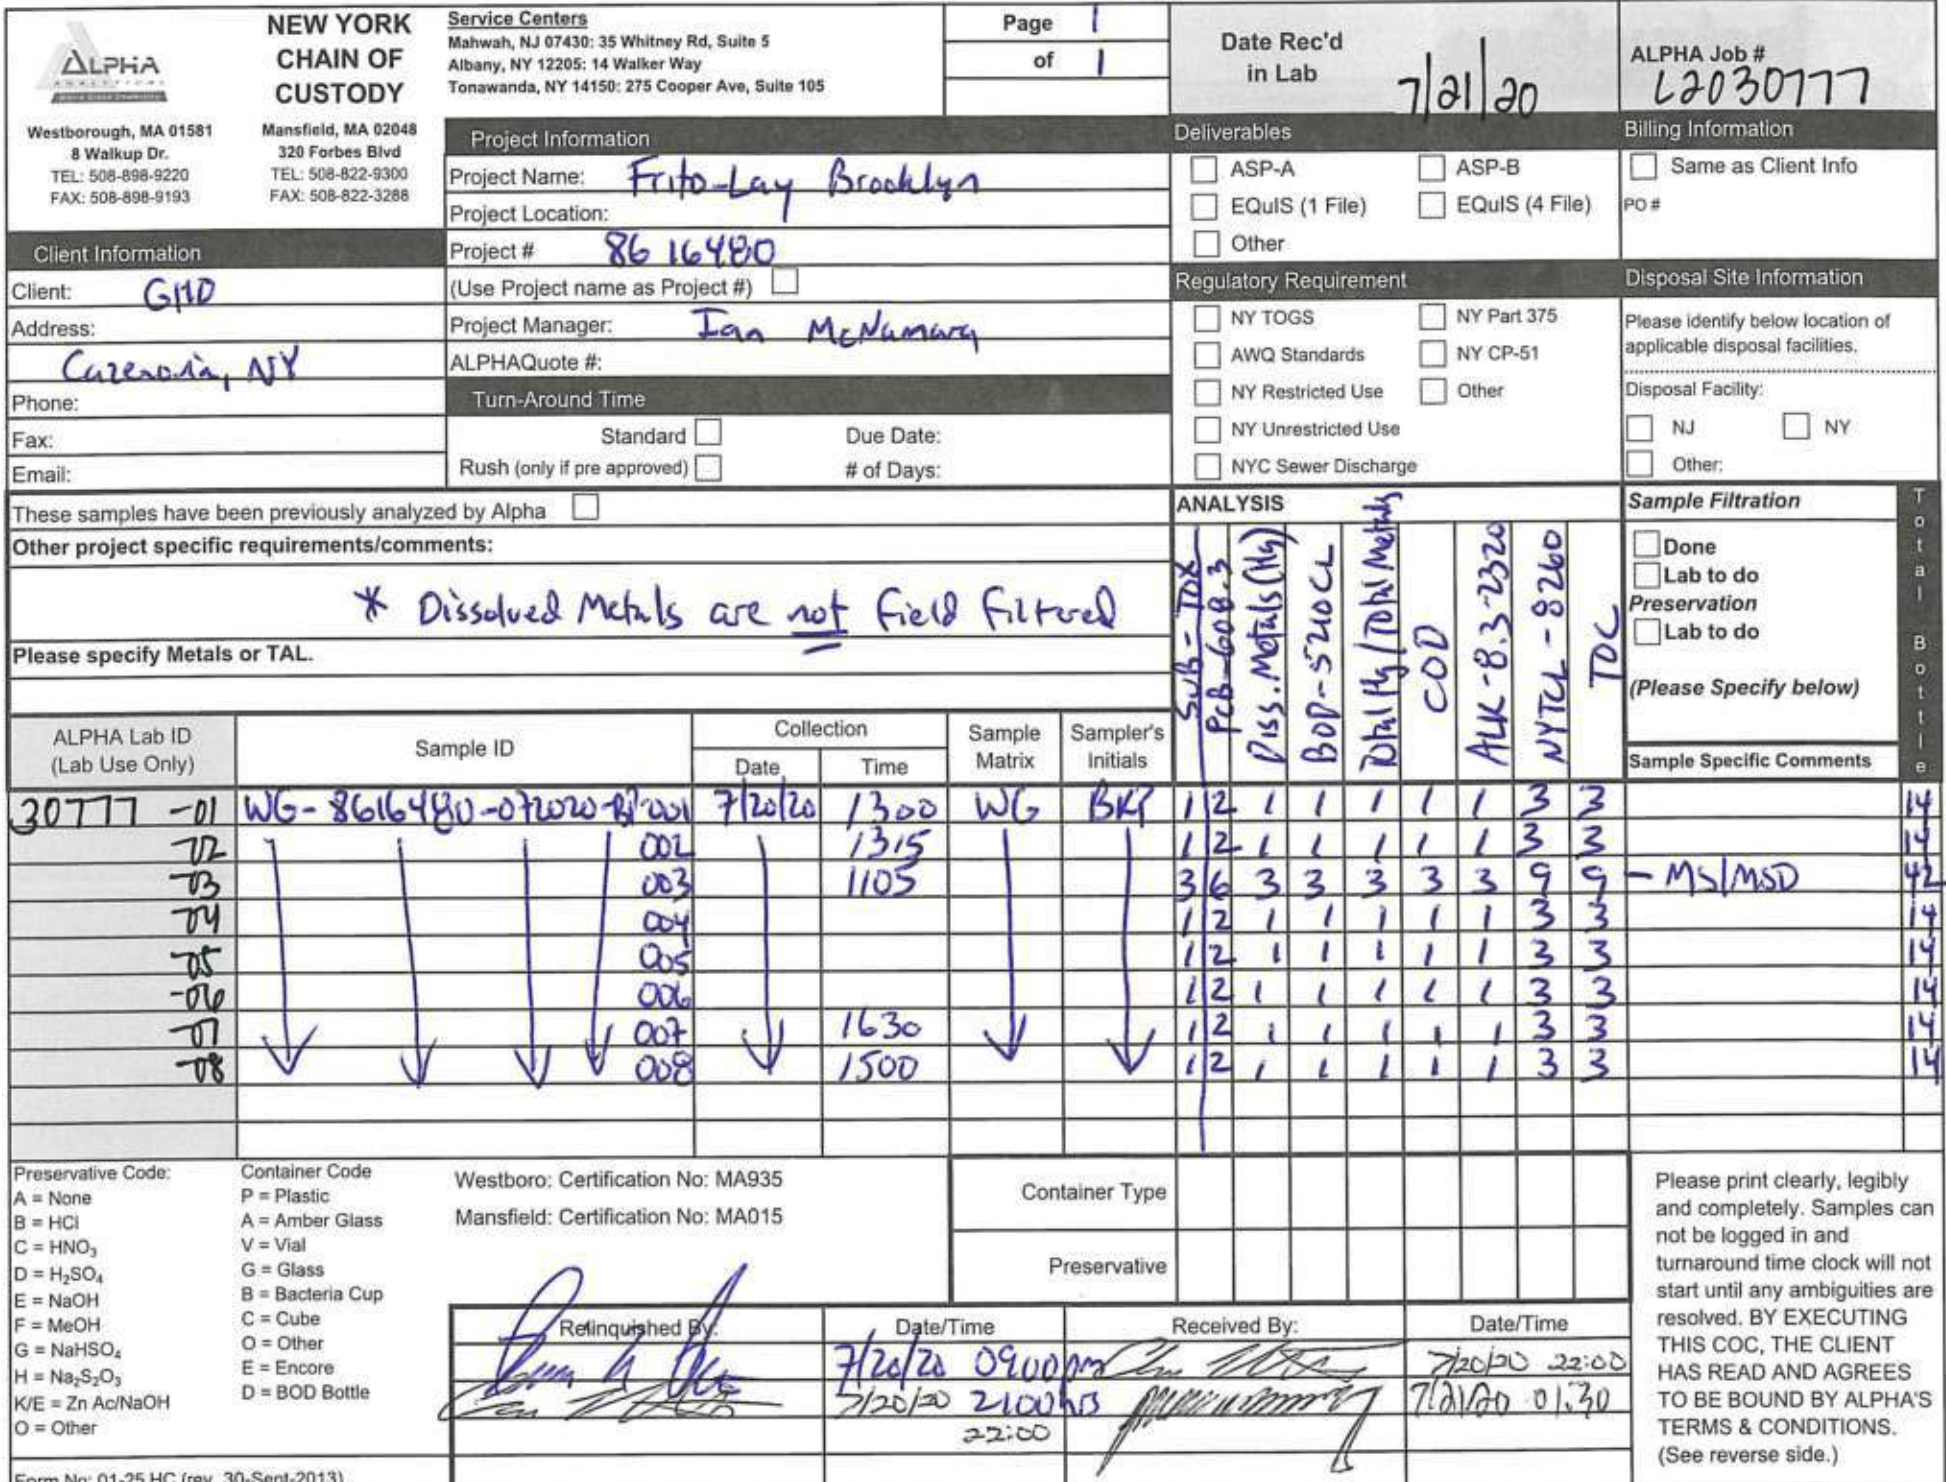 ALPHA
ANALYTICAL
NEW YORK
CHAIN OF
CUSTODY
Westborough, MA 01581
8 Walkup Dr.
TEL: 508-898-9220
FAX: 508-898-9193
Mansfield, MA 02048
320 Forbes Blvd
TEL: 508-822-9300
FAX: 508-822-3288
Service Centers
Mahwah, NJ 07430: 35 Whitney Rd, Suite 5
Albany, NY 12205: 14 Walker Way
Tonawanda, NY 14150: 275 Cooper Ave, Suite 105
Page 1
of 1
Date Rec'd
in Lab 7/21/20
ALPHA Job #
L2030777
Client Information
Client: GHD
Address:
Cazenovia, NY
Phone:
Fax:
Email:
Project Information
Project Name: Frito-Lay Brooklyn
Project Location:
Project # 8616480
(Use Project name as Project #)
Project Manager: Ian McNamara
ALPHAQuote #:
Turn-Around Time
Standard Due Date:
Rush (only if pre approved) # of Days:
Deliverables
ASP-A ASP-B
EQuIS (1 File) EQuIS (4 File)
Other
Regulatory Requirement
NY TOGS NY Part 375
AWQ Standards NY CP-51
NY Restricted Use Other
NY Unrestricted Use
NYC Sewer Discharge
Billing Information
Same as Client Info
PO #
Disposal Site Information
Please identify below location of
applicable disposal facilities.
Disposal Facility:
NJ NY
Other:
These samples have been previously analyzed by Alpha
Other project specific requirements/comments:
* Dissolved Metals are not field filtered
Please specify Metals or TAL.
ANALYSIS
Sub-TOX
PCB-608.3
Diss. Metals (Hg)
BOD-5210CL
Total Hg/Total Metals
COD
ALK-8.3-2320
NYTCL-8260
TOC
Sample Filtration
Done
Lab to do
Preservation
Lab to do
(Please Specify below)
Total Bottle
ALPHA Lab ID
(Lab Use Only)
Sample ID
Collection
Date Time
Sample
Matrix
Sampler's
Initials
Sample Specific Comments
30777 -01 WG-8616480-072020-BP-001 7/20/20 1300 WG BKP 1 2 1 1 1 1 1 3 3 14
-02 002 1315 1 2 1 1 1 1 1 3 3 14
-03 003 1105 3 6 3 3 3 3 3 9 9 - MS/MSD 42
-04 004 1 2 1 1 1 1 1 3 3 14
-05 005 1 2 1 1 1 1 1 3 3 14
-06 006 1 2 1 1 1 1 1 3 3 14
-07 007 1630 1 2 1 1 1 1 1 3 3 14
-08 008 1500 1 2 1 1 1 1 1 3 3 14
Preservative Code:
A = None
B = HCl
C = HNO3
D = H2SO4
E = NaOH
F = MeOH
G = NaHSO4
H = Na2S2O3
K/E = Zn Ac/NaOH
O = Other
Container Code
P = Plastic
A = Amber Glass
V = Vial
G = Glass
B = Bacteria Cup
C = Cube
O = Other
E = Encore
D = BOD Bottle
Westboro: Certification No: MA935
Mansfield: Certification No: MA015
Container Type
Preservative
Relinquished By: Date/Time Received By: Date/Time
7/20/20 0900pm 7/20/20 22:00
7/20/20 2100hrs 7/21/20 01:30
22:00
Please print clearly, legibly
and completely. Samples can
not be logged in and
turnaround time clock will not
start until any ambiguities are
resolved. BY EXECUTING
THIS COC, THE CLIENT
HAS READ AND AGREES
TO BE BOUND BY ALPHA'S
TERMS & CONDITIONS.
(See reverse side.)
Form No: 01-25 HC (rev. 30-Sept-2013)